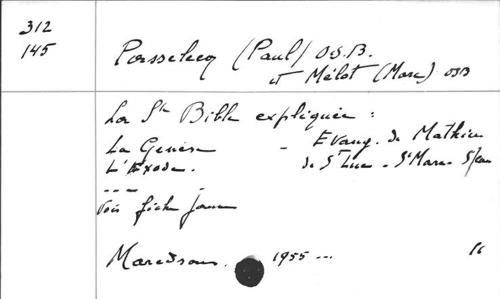 312
145
Passelecq (Paul) O.S.B.
et Mélot (Marc) OSB
La Ste Bible expliquée :
La Genèse - Evang. de Mathieu
L'Exode. de St Luc - St Marc - St Jean
---
Voir fiche jaune
Maredsous. 1955 ...